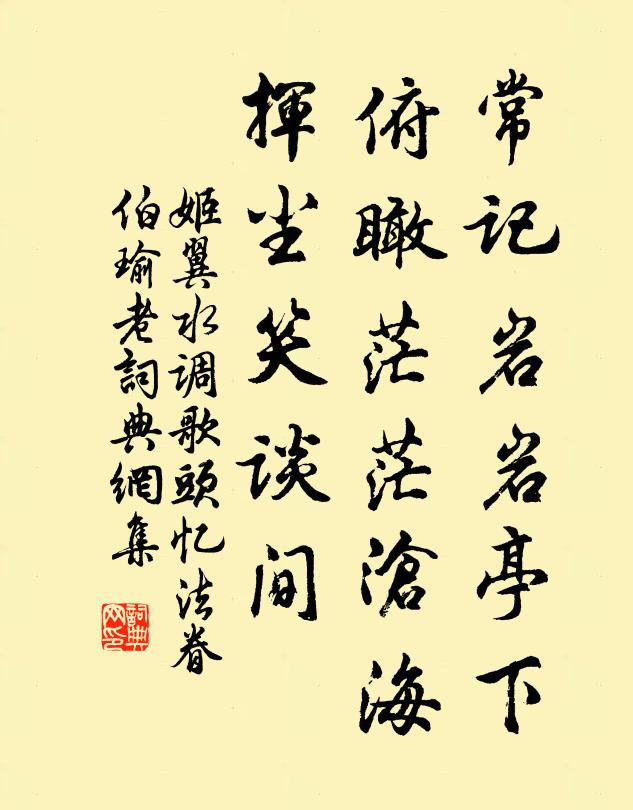 常记岩岩亭下
俯瞰茫茫滄海
揮尘笑谈间
姬翼水调歌頭忆法眷
伯瑜老詞典網集
詞典
网印